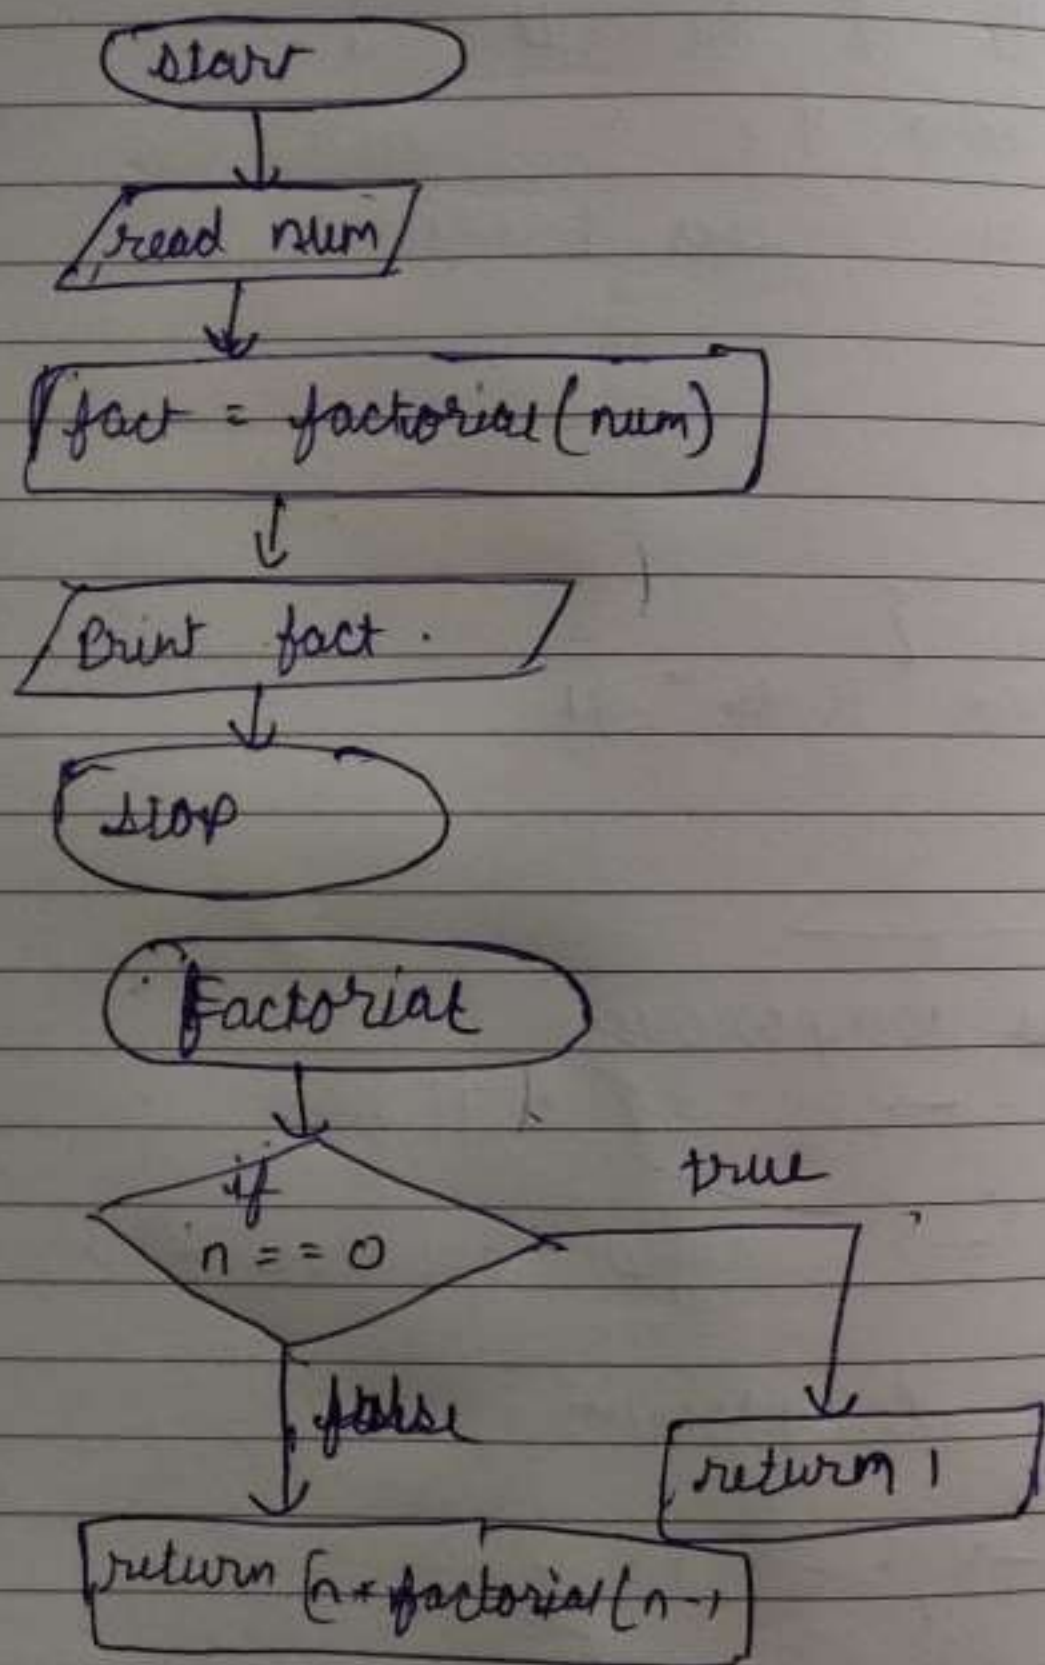 start
read num
fact = factorial(num)
Print fact.
stop
Factorial
if
true
n == 0
false
return 1
return (n * factorial(n-1